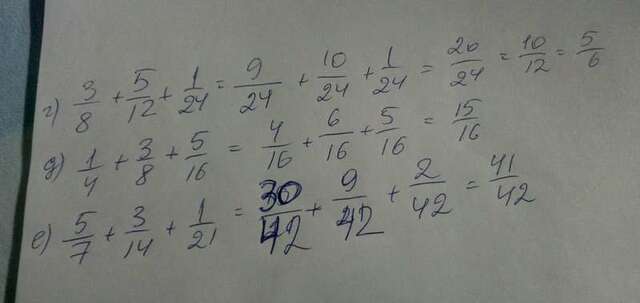 г) 3/8 + 5/12 + 1/24 = 9/24 + 10/24 + 1/24 = 20/24 = 10/12 = 5/6
д) 1/4 + 3/8 + 5/16 = 4/16 + 6/16 + 5/16 = 15/16
е) 5/7 + 3/14 + 1/21 = 30/42 + 9/42 + 2/42 = 41/42